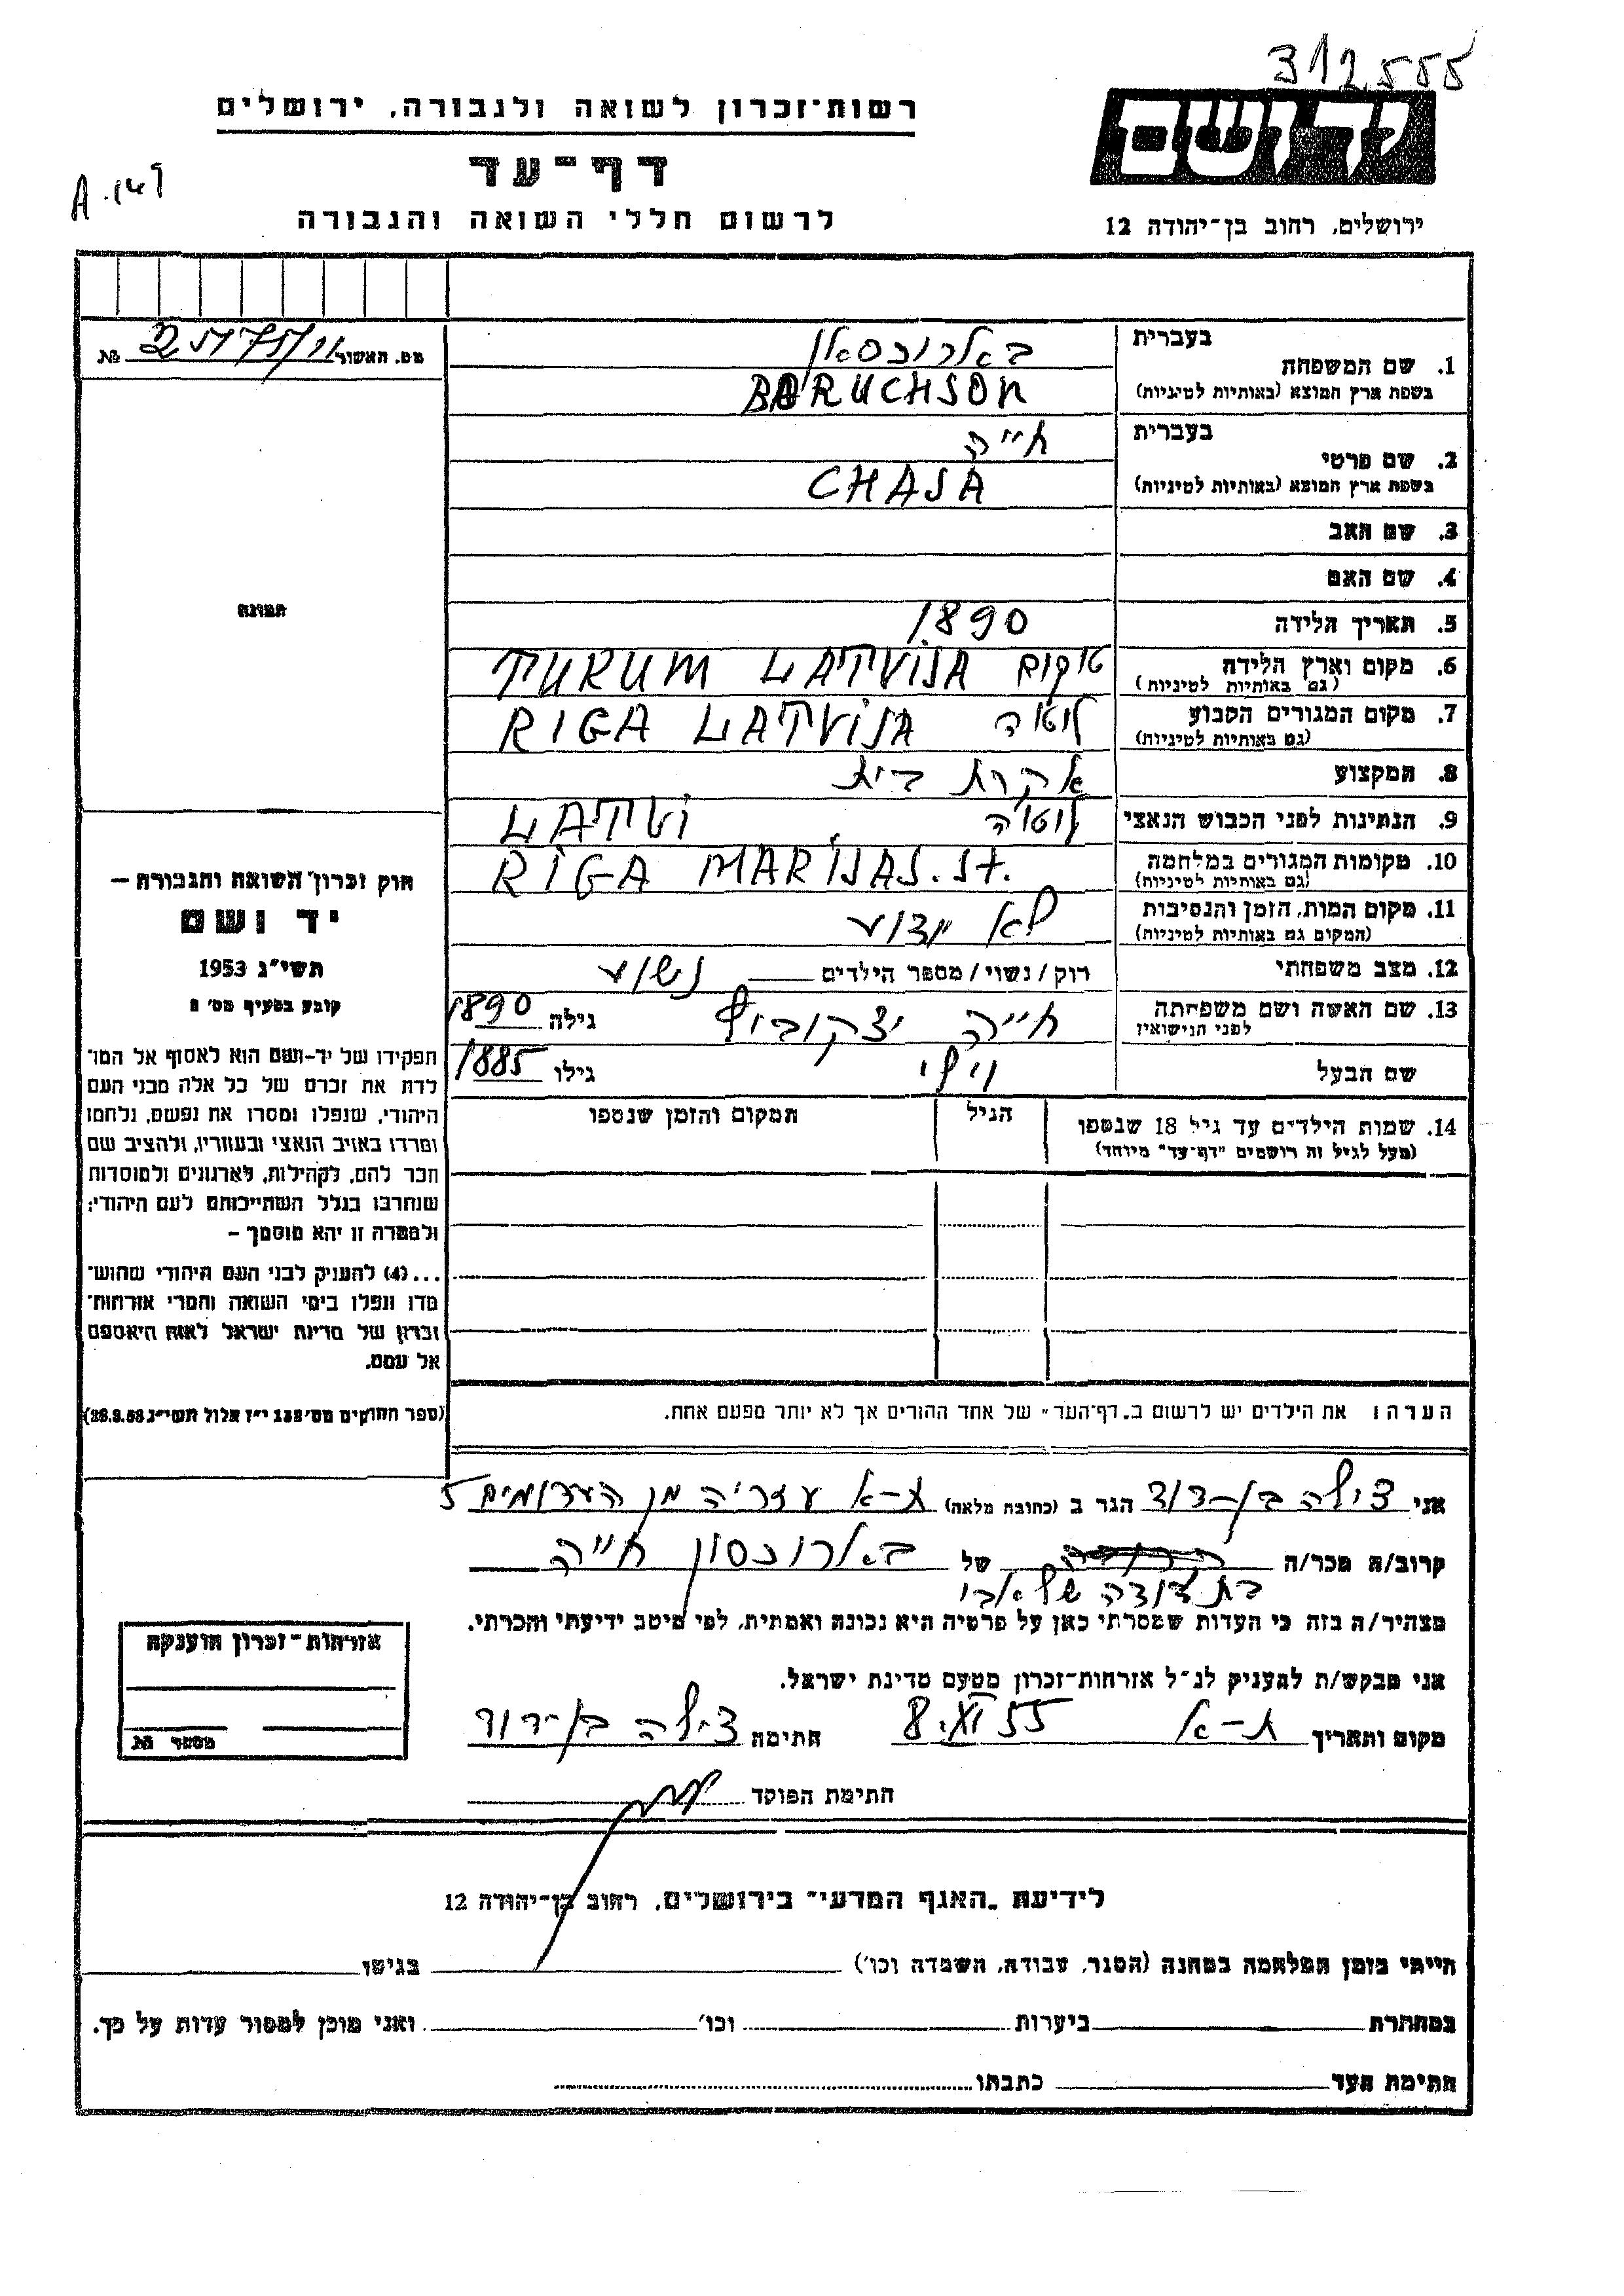 312555
רשות־זכרון לשואה ולגבורה, ירושלים
יד ושם
דף־עד
A.149
לרשום חללי השואה והגבורה
ירושלים, רחוב בן־יהודה 12
מס. האשור №
1. שם המשפחה
בעברית
בארוכסאן
בשפת ארץ המוצא (באותיות לטיניות)
BARUCHSON
2. שם פרטי
בעברית
חייה
בשפת ארץ המוצא (באותיות לטיניות)
CHAJA
3. שם האב
4. שם האם
תמונה
5. תאריך הלידה 1890
6. מקום וארץ הלידה טוקום TUKUM LATVIJA
(גם באותיות לטיניות)
7. מקום המגורים הקבוע לטויה RIGA LATVIJA
(גם באותיות לטיניות)
8. המקצוע עקרת בית
9. הנתינות לפני הכבוש הנאצי לטויה LATVI
10. מקומות המגורים במלחמה RIGA MARIJAS. ST.
(גם באותיות לטיניות)
11. מקום המות, הזמן והנסיבות לא ידוע
(המקום גם באותיות לטיניות)
12. מצב משפחתי רוק/נשוי/מספר הילדים
13. שם האשה ושם משפחתה חייה יעקוביץ גילה 1890
לפני הנישואין
שם הבעל וילי גילו 1885
14. שמות הילדים עד גיל 18 שנספו הגיל המקום והזמן שנספו
(מעל לגיל זה רושמים "דף־עד" מיוחד)
חוק זכרון השואה והגבורה –
יד ושם
תשי"ג 1953
קובע בסעיף מס' 2
תפקידו של יד-ושם הוא לאסוף אל המו־
לדת את זכרם של כל אלה מבני העם
היהודי, שנפלו ומסרו את נפשם, נלחמו
ומרדו באויב הנאצי ובעוזריו, ולהציב שם
וזכר להם, לקהילות, לארגונים ולמוסדות
שנחרבו בגלל השתייכותם לעם היהודי;
ולמטרה זו יהא מוסמך –
...(4) להעניק לבני העם היהודי שהוש־
מדו ונפלו בימי השואה והמרי אזרחות־
זכרון של מדינת ישראל לאות היאספם
אל עמם.
(ספר החוקים מס' 132 י"ז אלול תשי"ג 28.8.53)
הערה: את הילדים יש לרשום ב„דף־העד" של אחד ההורים אך לא יותר מפעם אחת.
אני צילה בן-דוד הגר ב (כתובת מלאה) ת-א עזריה מן האדומים 5
קרוב/ה מכר/ה של בארוכסון חייה
בת דודה של אבי
מצהיר/ה בזה כי העדות שמסרתי כאן על פרטיה היא נכונה ואמתית, לפי מיטב ידיעתי והכרתי.
אני מבקש/ת להעניק לנ"ל אזרחות־זכרון מטעם מדינת ישראל.
מקום ותאריך ת-א 8. 55 חתימה צילה בן-דוד
חתימת הפוקד
אזרחות־זכרון הוענקה
מספר №
לידיעת „האגף המדעי" בירושלים, רחוב בן־יהודה 12
הייתי בזמן המלחמה במחנה (הסגר, עבודה, השמדה וכו') בגיטו
במחתרת ביערות וכו' ואני מוכן למסור עדות על כך.
חתימת העד כתבתו